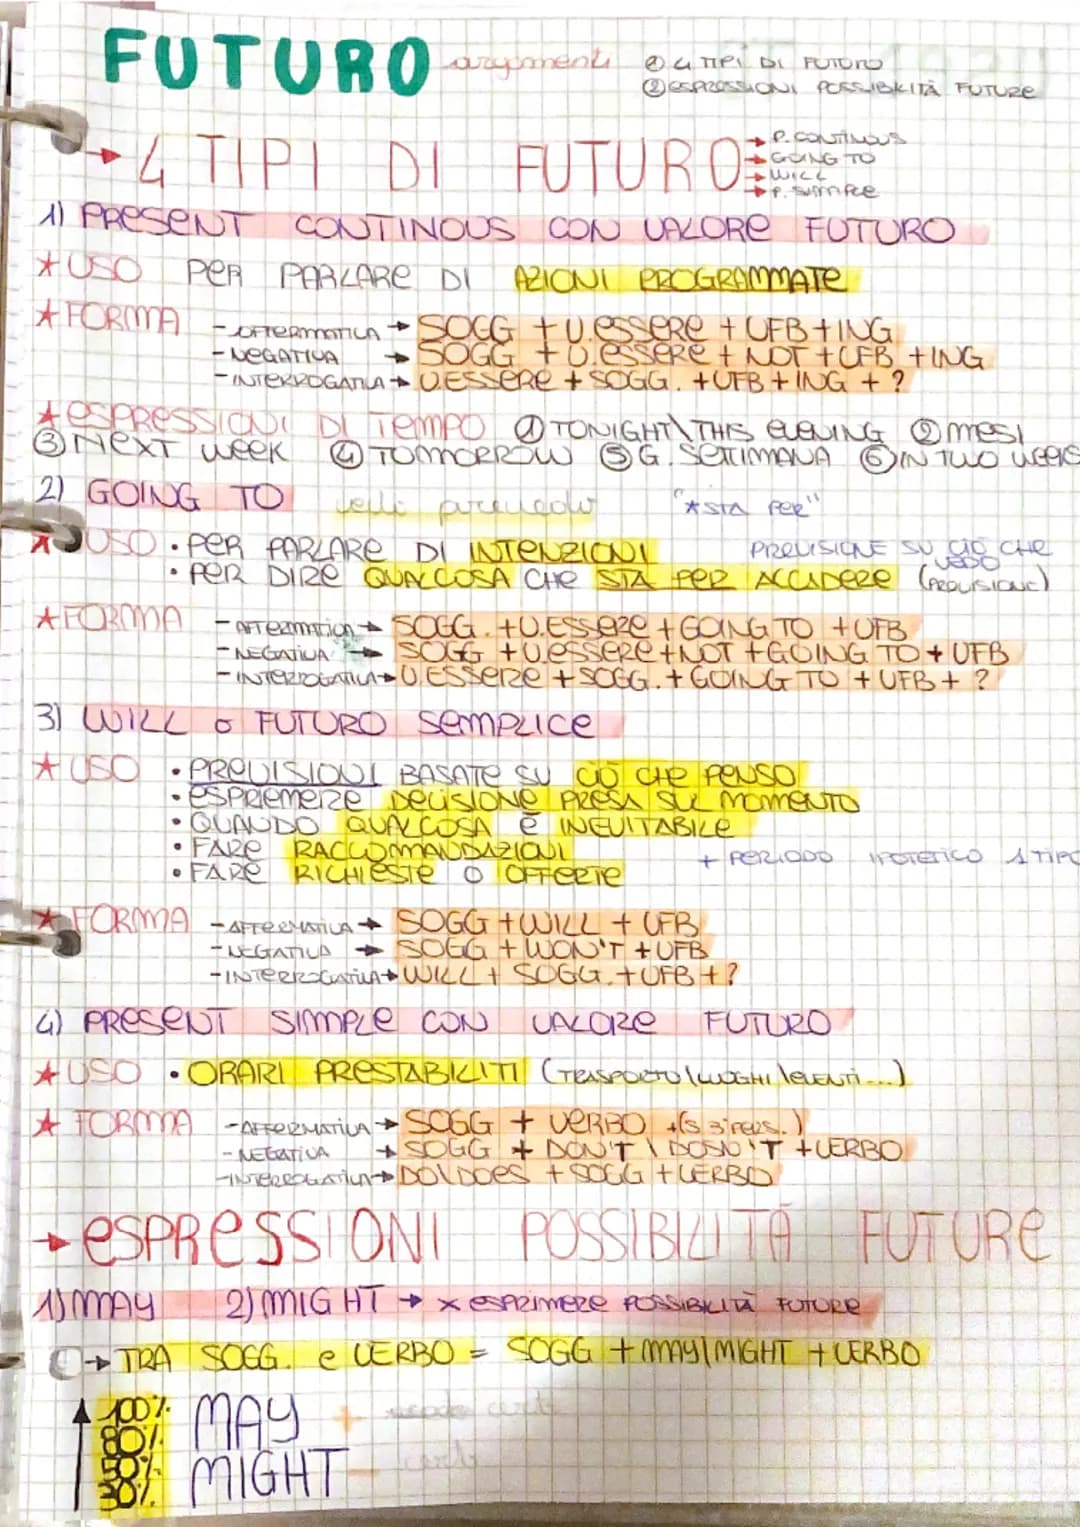 FUTURO argomenti ① 4 TIPI DI FUTURO
② ESPRESSIONI POSSIBILITÀ FUTURE
→ 4 TIPI DI FUTURO → P. CONTINOUS
→ GOING TO
→ WILL
→ P. SIMPLE
1) PRESENT CONTINOUS CON VALORE FUTURO
* USO PER PARLARE DI AZIONI PROGRAMMATE
* FORMA - AFFERMATIVA → SOGG + V.ESSERE + VFB + ING
- NEGATIVA → SOGG + V.ESSERE + NOT + VFB + ING
- INTERROGATIVA → V.ESSERE + SOGG. + VFB + ING + ?
* ESPRESSIONI DI TEMPO ① TONIGHT \ THIS EVENING ② MESI
③ NEXT WEEK ④ TOMORROW ⑤ G. SETTIMANA ⑥ IN TWO WEEKS
2) GOING TO "*STA PER"
* USO • PER PARLARE DI INTENZIONI PREVISIONE SU CIÒ CHE VEDO
• PER DIRE QUALCOSA CHE STA PER ACCADERE (PREVISIONE)
* FORMA - AFFERMATIVA → SOGG. + V.ESSERE + GOING TO + VFB
- NEGATIVA → SOGG + V.ESSERE + NOT + GOING TO + VFB
- INTERROGATIVA → V.ESSERE + SOGG. + GOING TO + VFB + ?
3) WILL o FUTURO SEMPLICE
* USO • PREVISIONI BASATE SU CIÒ CHE PENSO
• ESPRIEMERE DECISIONE PRESA SUL MOMENTO
• QUANDO QUALCOSA È INEVITABILE
• FARE RACCOMANDAZIONI
+ PERIODO IPOTETICO 1 TIPO
• FARE RICHIESTE O OFFERTE
* FORMA - AFFERMATIVA → SOGG + WILL + VFB
- NEGATIVA → SOGG + WON'T + VFB
- INTERROGATIVA → WILL + SOGG. + VFB + ?
4) PRESENT SIMPLE CON VALORE FUTURO
* USO • ORARI PRESTABILITI (TRASPORTO \ LUOGHI \ EVENTI ...)
* FORMA - AFFERMATIVA → SOGG + VERBO +(S 3ª PERS.)
- NEGATIVA → SOGG + DON'T \ DOSN'T + VERBO
- INTERROGATIVA → DO \ DOES + SOGG + VERBO
→ ESPRESSIONI POSSIBILITÀ FUTURE
1) MAY 2) MIGHT → x ESPRIMERE POSSIBILITÀ FUTURE
→ TRA SOGG. e VERBO = SOGG + MAY \ MIGHT + VERBO
100% MAY +
80%
50% MIGHT -
30%